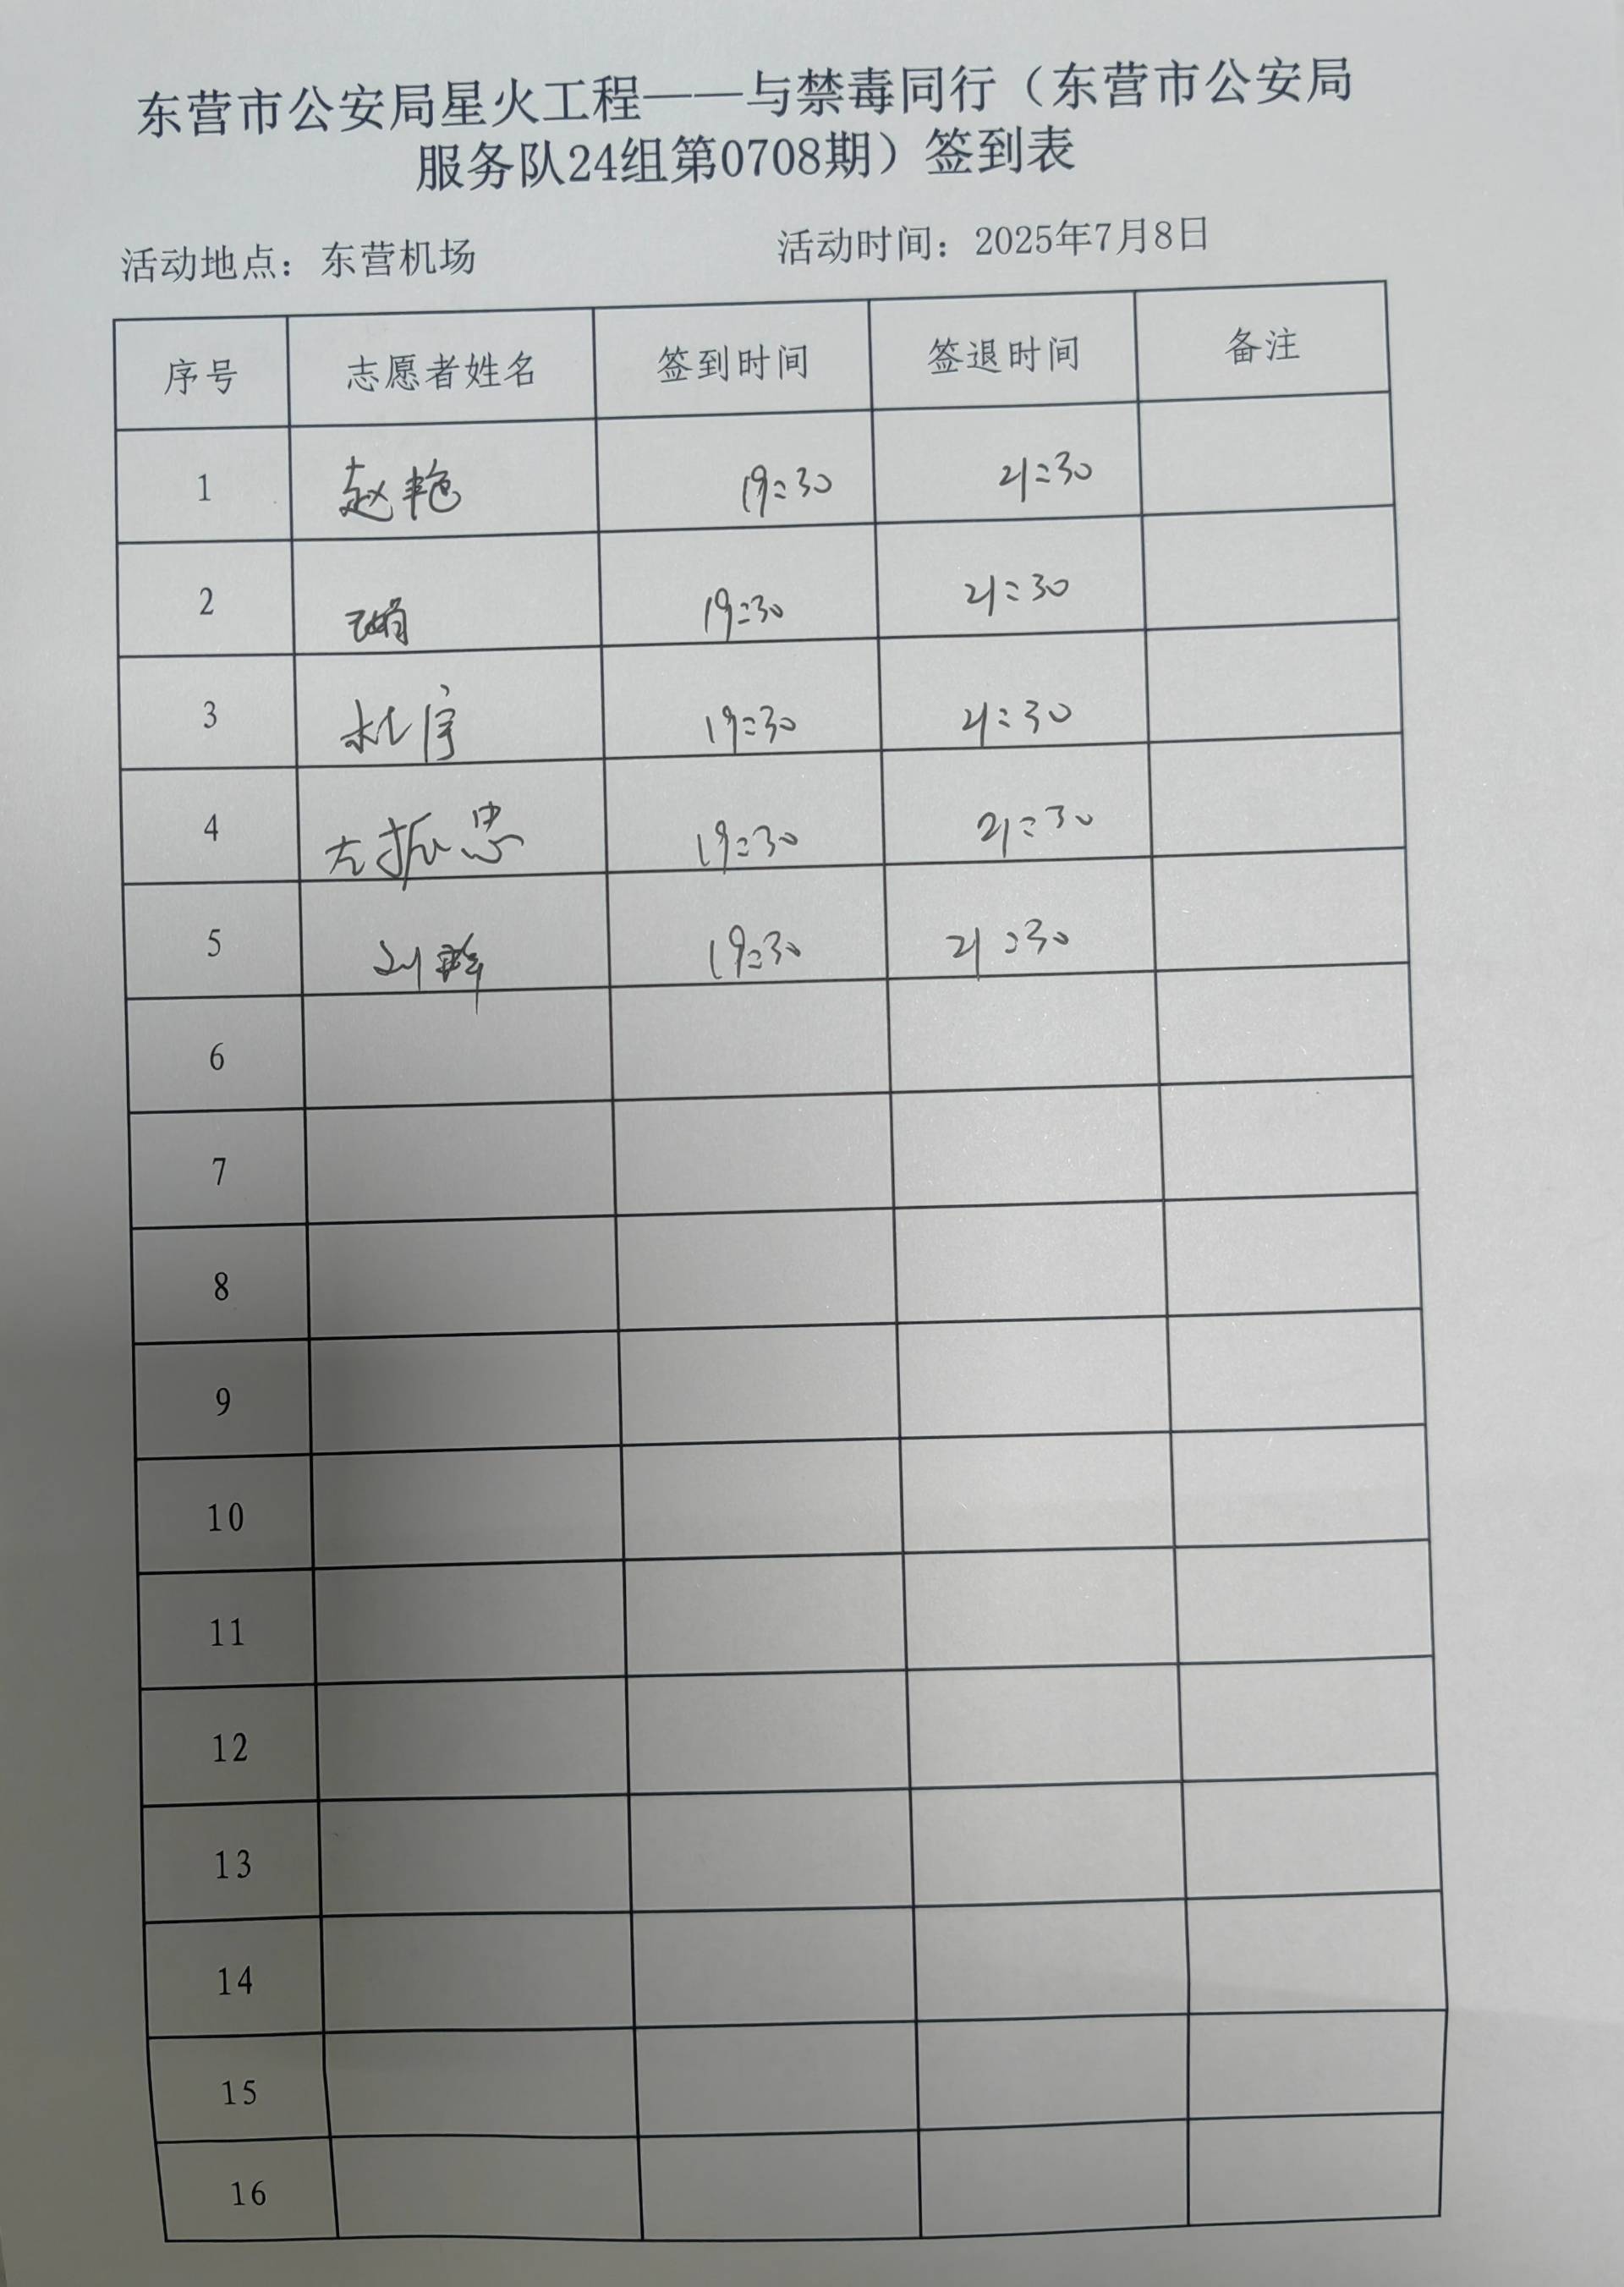 东营市公安局星火工程——与禁毒同行（东营市公安局
服务队24组第0708期）签到表
活动地点：东营机场 活动时间：2025年7月8日
序号 志愿者姓名 签到时间 签退时间 备注
1 赵艳 19:30 21:30
2 19:30 21:30
3 杜宇 19:30 21:30
4 左振忠 19:30 21:30
5 刘 19:30 21:30
6
7
8
9
10
11
12
13
14
15
16